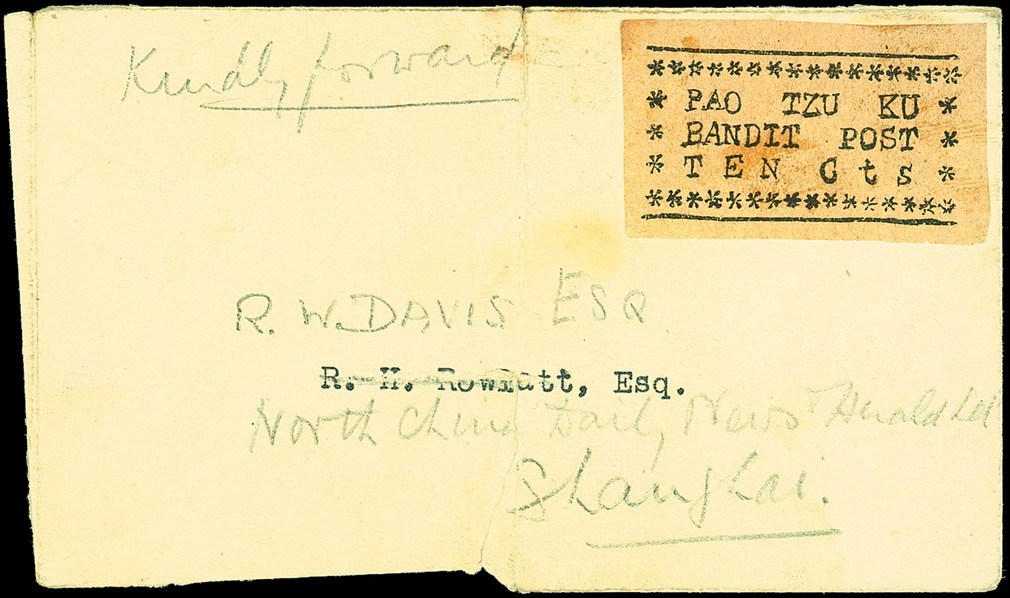 Kindly forward
* * * * * * * * * * * * * * * *
* PAO TZU KU *
* BANDIT POST *
* TEN Cts *
* * * * * * * * * * * * * * * *
R. W. DAVIS ESQ
R. H. Rowlatt, Esq.
North China Daily News & Herald Ltd
Shanghai.